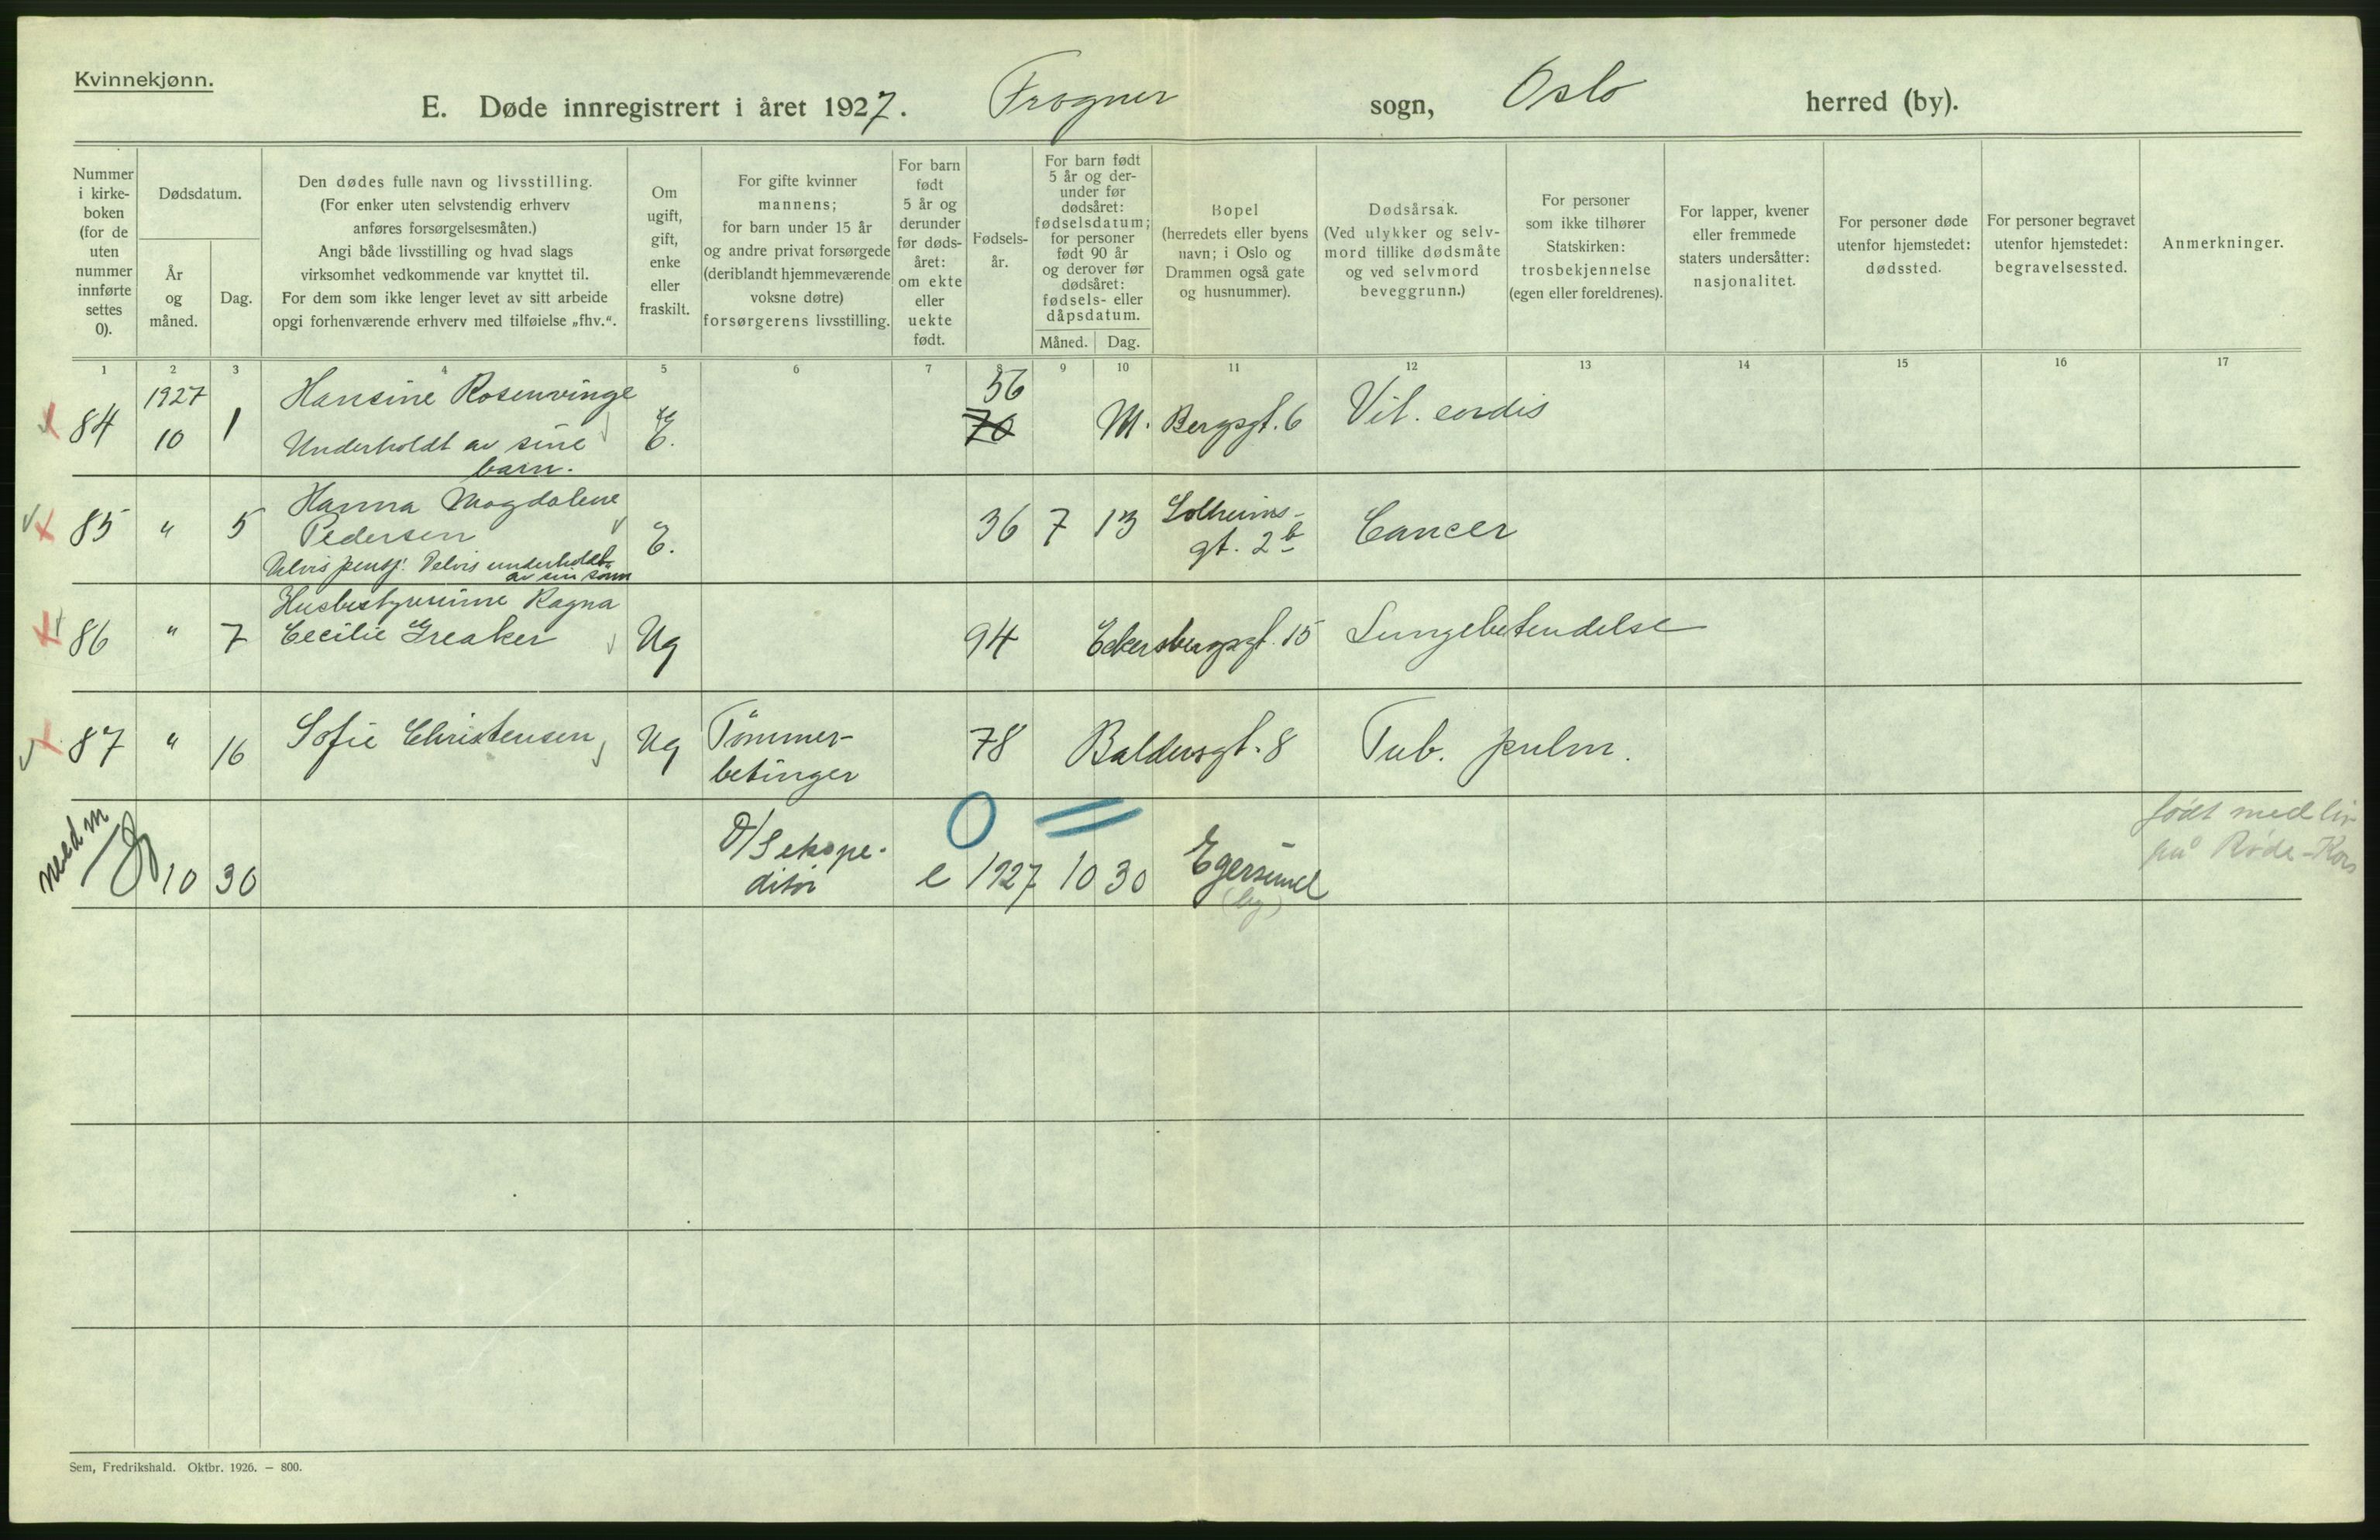 Kvinnekjønn.
E. Døde innregistrert i året 1927. Frogner sogn, Oslo herred (by).
Nummer
i kirke-
boken
(for de
uten
nummer
innførte
settes
0).
Dødsdatum.
År
og
måned.
Dag.
Den dødes fulle navn og livsstilling.
(For enker uten selvstendig erhverv
anføres forsørgelsesmåten.)
Angi både livsstilling og hvad slags
virksomhet vedkommende var knyttet til.
For dem som ikke lenger levet av sitt arbeide
opgi forhenværende erhverv med tilføielse „fhv.“.
Om
ugift,
gift,
enke
eller
fraskilt.
For gifte kvinner
mannens;
for barn under 15 år
og andre privat forsørgede
(deriblandt hjemmeværende
voksne døtre)
forsørgerens livsstilling.
For barn
født
5 år og
derunder
før døds-
året:
om ekte
eller
uekte
født.
Fødsels-
år.
For barn født
5 år og der-
under før
dødsåret:
fødselsdatum;
for personer
født 90 år
og derover før
dødsåret:
fødsels- eller
dåpsdatum.
Måned. Dag.
Bopel
(herredets eller byens
navn; i Oslo og
Drammen også gate
og husnummer).
Dødsårsak.
(Ved ulykker og selv-
mord tillike dødsmåte
og ved selvmord
beveggrunn.)
For personer
som ikke tilhører
Statskirken:
trosbekjennelse
(egen eller foreldrenes).
For lapper, kvener
eller fremmede
staters undersåtter:
nasjonalitet.
For personer døde
utenfor hjemstedet:
dødssted.
For personer begravet
utenfor hjemstedet:
begravelsessted.
Anmerkninger.
1 2 3 4 5 6 7 8 9 10 11 12 13 14 15 16 17
1927 Hansine Rosenvinge 56
84 10 1 Underholdt av sine E. 70 M. Bergsgt. 6 Vit. cordis
barn.
Hanna Magdalene
85 " 5 Pedersen E. 36 7 13 Solheims-
gt. 2b Cancer
Delvis pensj. Delvis underholdt
av sin sønn
Husbestyrerinne Ragna
86 " 7 Cecilie Greaker Ug 94 Eckersbergsgt. 15 Lungebetendelse
87 " 16 Sofie Christensen Ug Tømmer- 78 Baldersgt. 8 Tub. pulm.
betinger
født med liv
på Røde-Kors
med m
10 30 D/S ekspe-
ditør e 1927 10 30 Egersund
(by)
Sem, Fredrikshald. Oktbr. 1926. — 800.